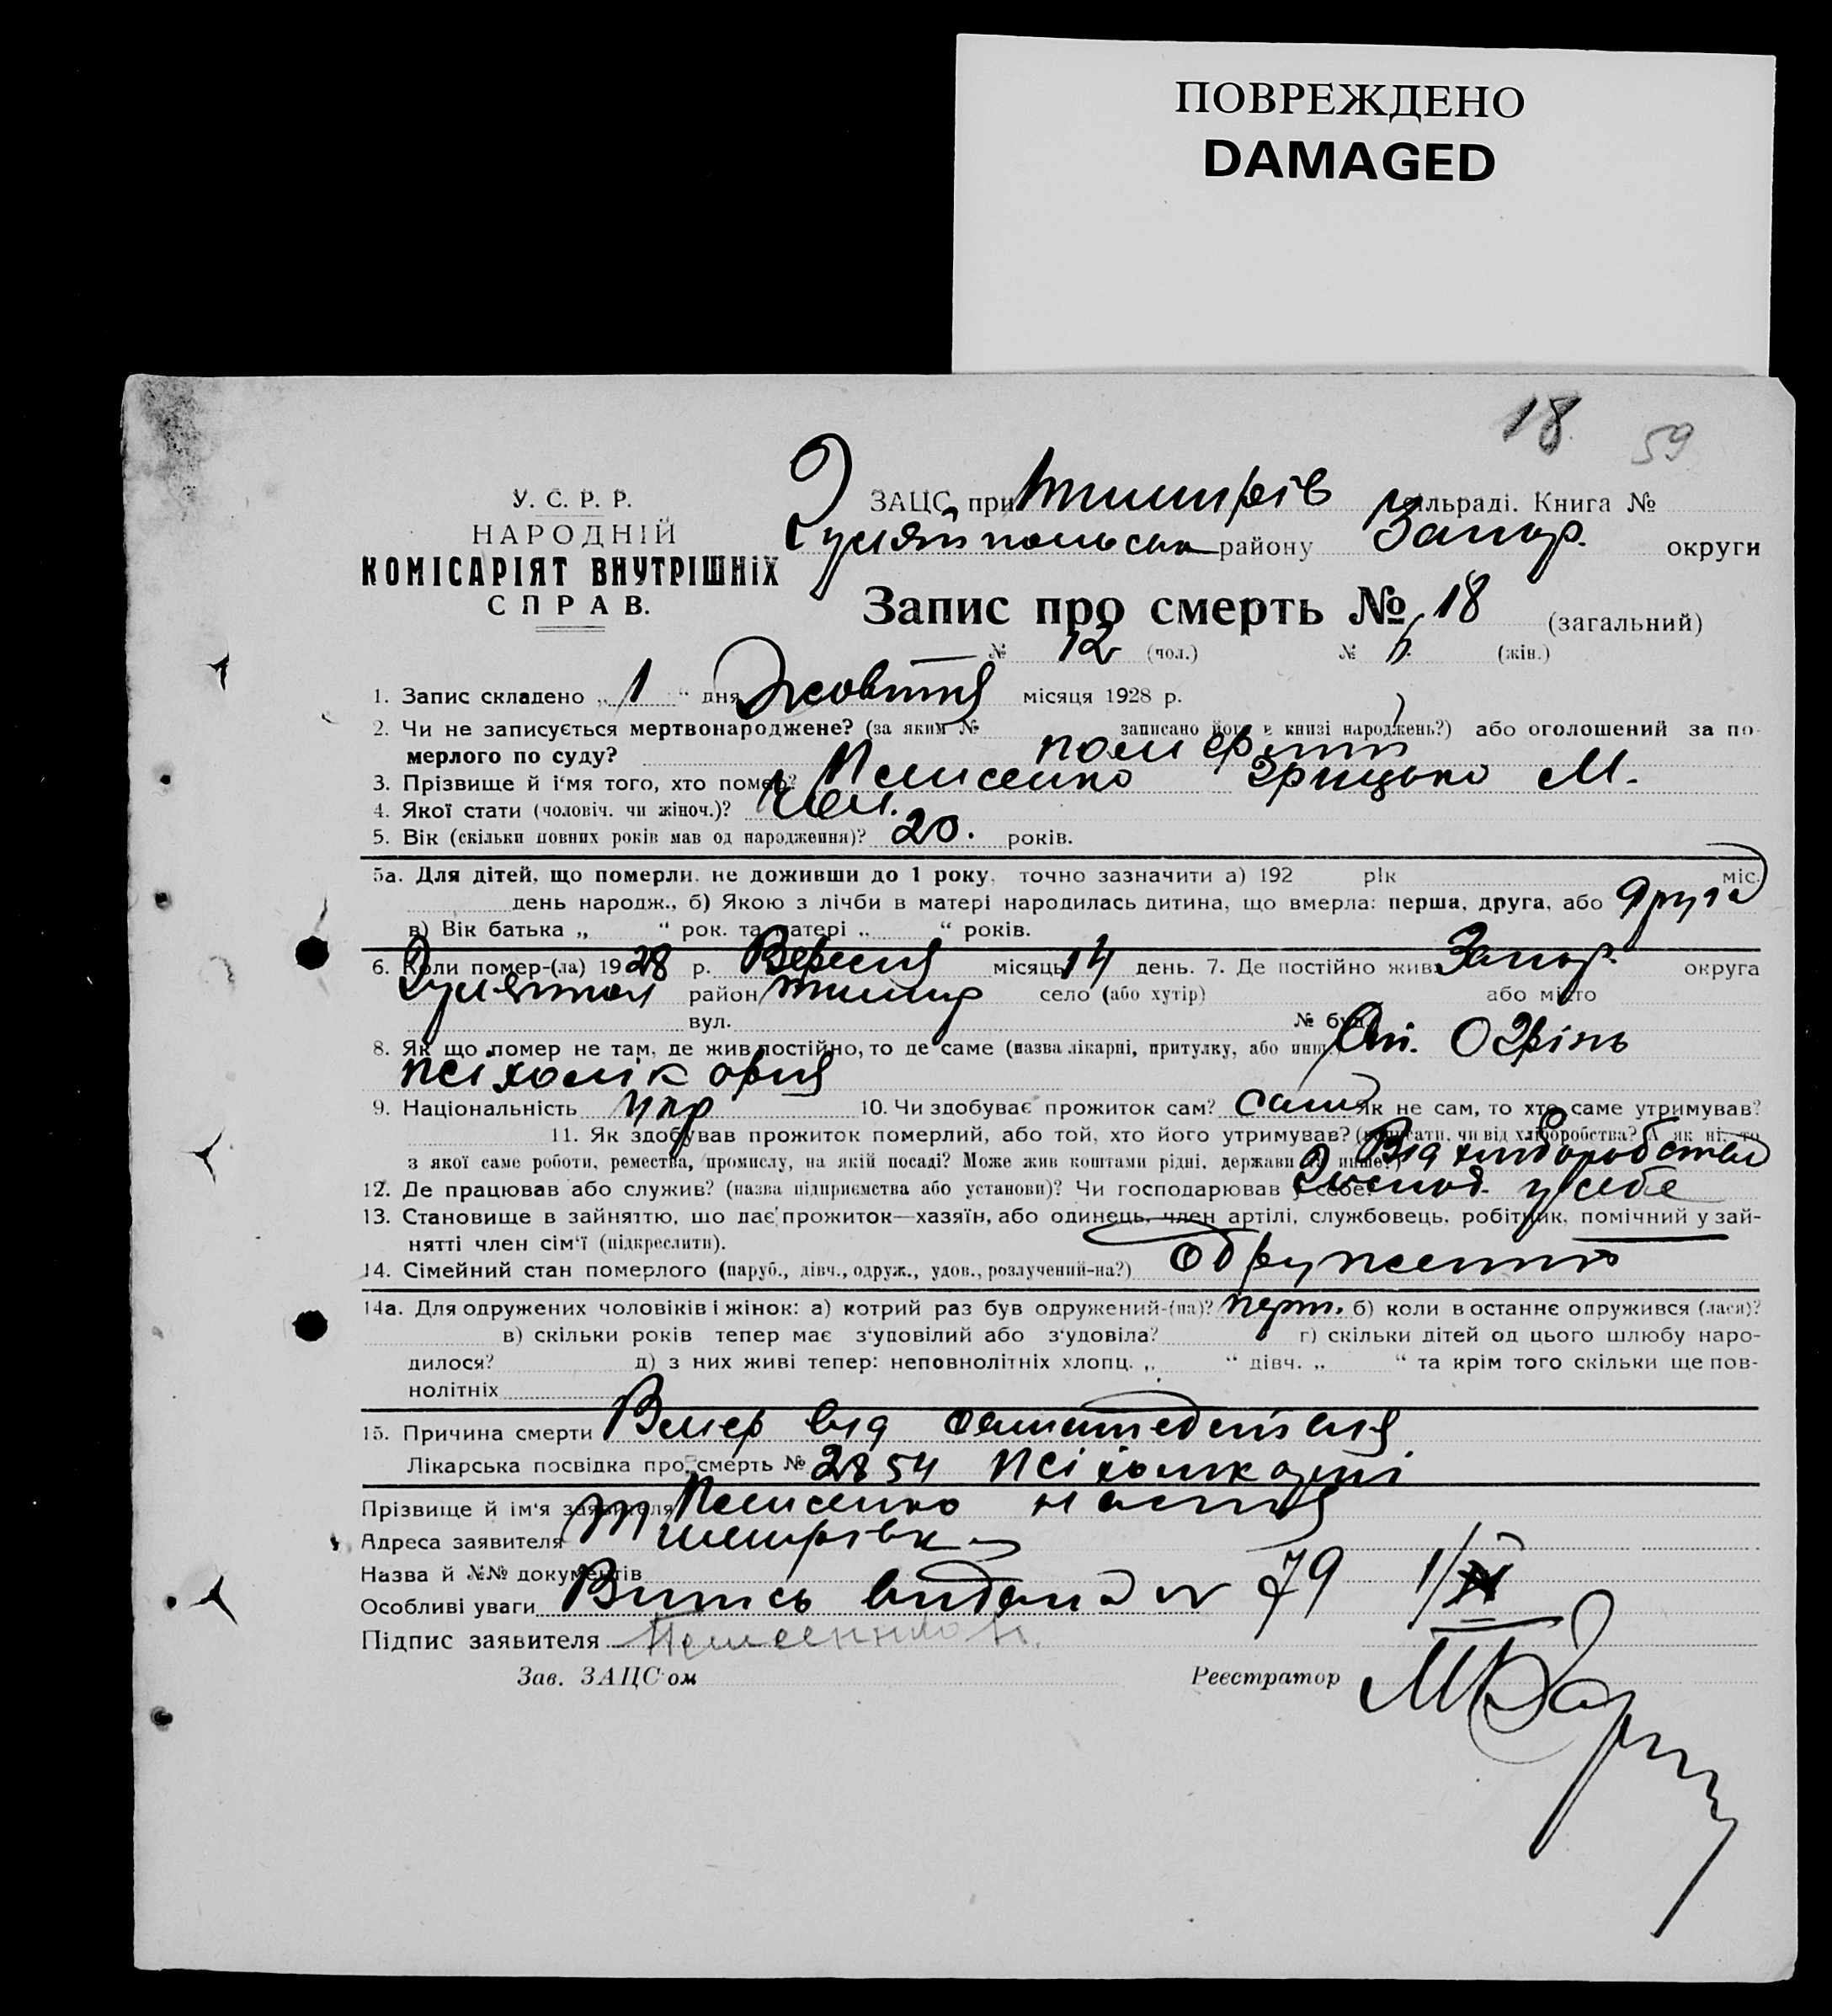 ПОВРЕЖДЕНО
DAMAGED
18 59
У. С. Р. Р.
НАРОДНІЙ
КОМІСАРІЯТ ВНУТРІШНІХ
СПРАВ.
ЗАЦС при сільраді. Книга №
району Запор. округи
Запис про смерть № 18 (загальний)
№ 12 (чол.) № (жін.)
1. Запис складено „ 1 “ дня Жовтня місяця 1928 р.
2. Чи не записується мертвонароджене? (за яким № записано його в книзі народжень?) або оголошений за по-
мерлого по суду? померший
3. Прізвище й і'мя того, хто помер? Грицько М.
4. Якої стати (чоловіч. чи жіноч.)? Чол.
5. Вік (скільки повних років мав од народження)? 20. років.
5а. Для дітей, що померли, не доживши до 1 року, точно зазначити а) 192 рік міс.
день народж., б) Якою з лічби в матері народилась дитина, що вмерла: перша, друга, або друга
в) Вік батька „ “ рок. та матері „ “ років.
6. Коли помер-(ла) 1928 р. Вересня місяць 14 день. 7. Де постійно жив Запор. округа
район село (або хутір) або місто
вул. № буд.
8. Як що помер не там, де жив постійно, то де саме (назва лікарні, притулку, або инш.) Ст. Огрінь
психолікарня
9. Національність укр 10. Чи здобуває прожиток сам? сам Як не сам, то хто саме утримував?
11. Як здобував прожиток померлий, або той, хто його утримував? (написати, чи від хліборобства? А як ні, то
з якої саме роботи, ремества, промислу, на якій посаді? Може жив коштами рідні, держави чи инше?) Від хліборобства
12. Де працював або служив? (назва підприємства або установи)? Чи господарював у себе? Господ. у себе
13. Становище в зайняттю, що дає прожиток—хазяїн, або одинець, член артілі, службовець, робітник, помічний у зай-
нятті член сім'ї (підкреслити).
14. Сімейний стан померлого (паруб., дівч., одруж., удов., розлучений-на?) одружений
14а. Для одружених чоловіків і жінок: а) котрий раз був одружений-(на)? перш. б) коли в останнє одружився (лася)?
в) скільки років тепер має з'уповілий або з'удовіла? г) скільки дітей од цього шлюбу наро-
дилося? д) з них живі тепер: неповнолітніх хлопц. „ “ дівч. „ “ та крім того скільки ще пов-
нолітніх
15. Причина смерти Вмер від
Лікарська посвідка про смерть № 2854
Прізвище й ім'я заявителя Настя
Адреса заявителя
Назва й №№ документів
Особливі уваги Витись видана № 79 1/X
Підпис заявителя
Зав. ЗАЦС'ом Реєстратор